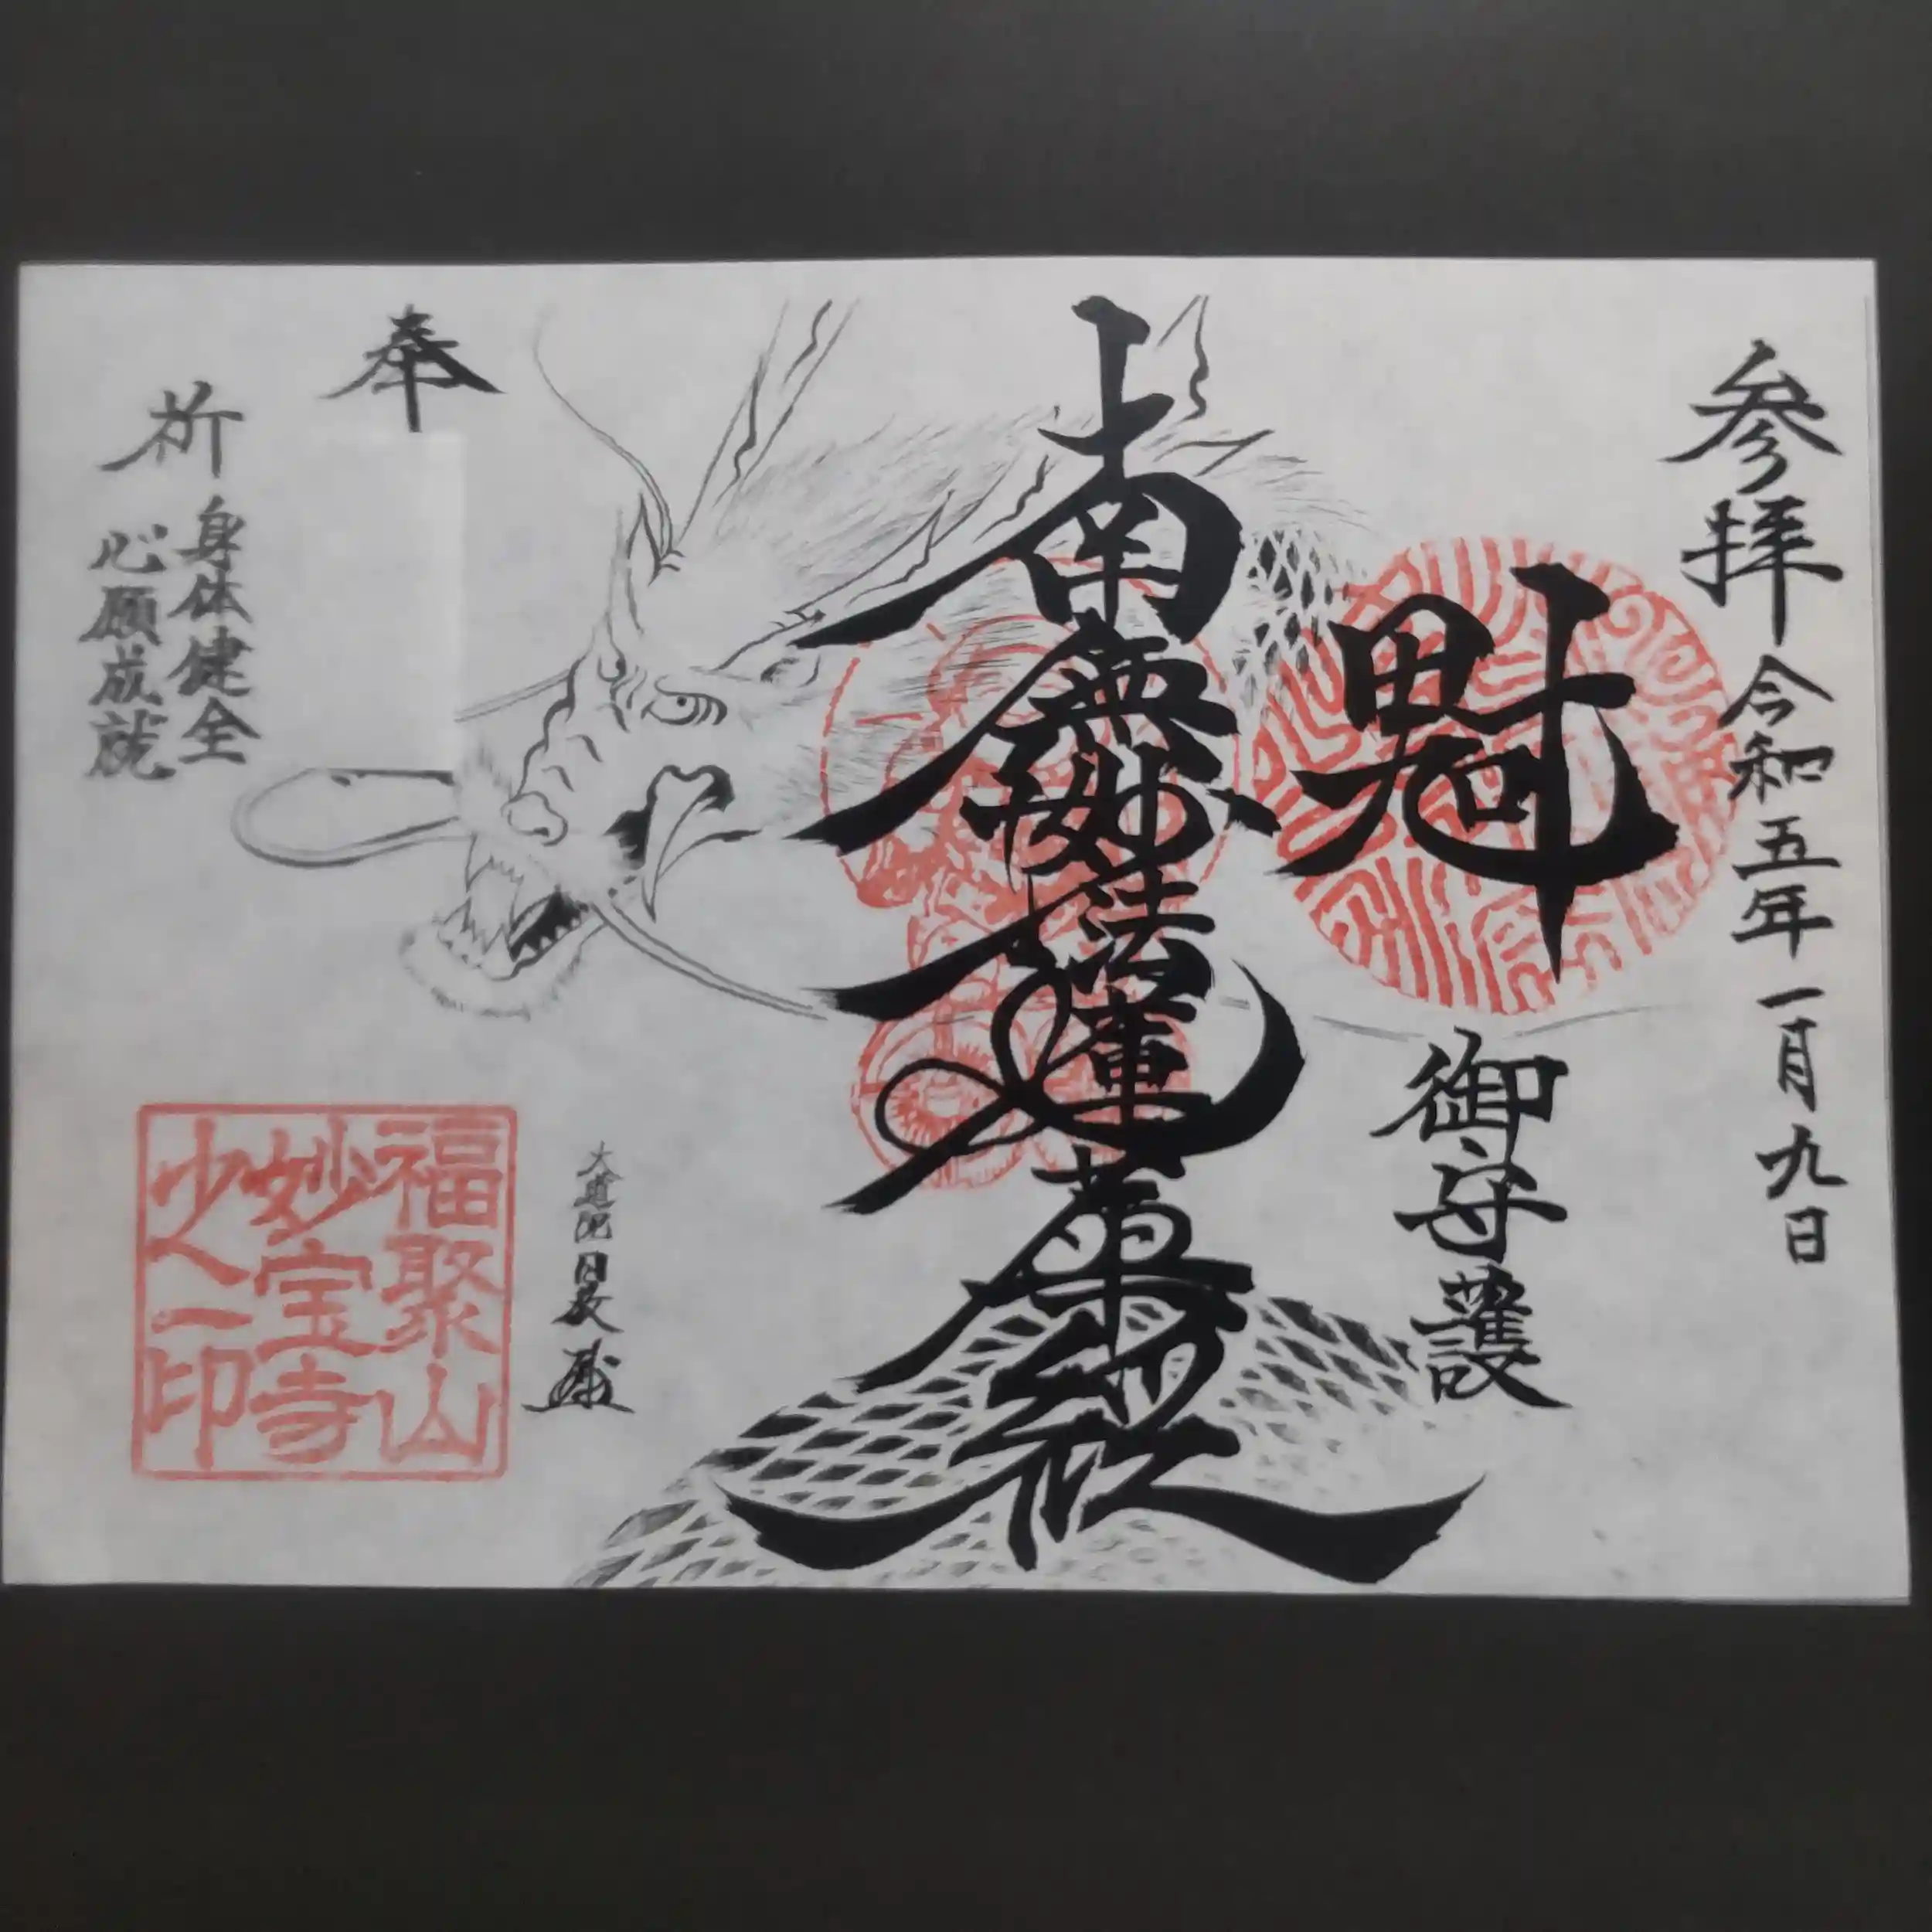 参拝 令和五年一月九日
魁
御守護
南無妙法蓮華経
奉
祈
身体健全
心願成就
福聚山
妙宝寺
之印